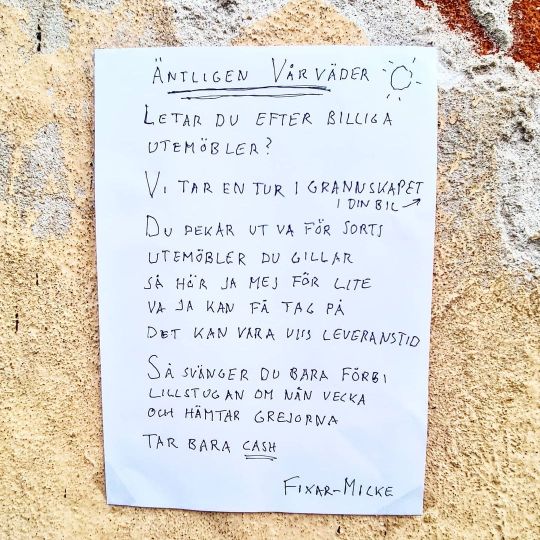 ÄNTLIGEN VÅRVÄDER
LETAR DU EFTER BILLIGA
UTEMÖBLER?
VI TAR EN TUR I GRANNSKAPET
I DIN BIL
DU PEKAR UT VA FÖR SORTS
UTEMÖBLER DU GILLAR
SÅ HÖR JA MEJ FÖR LITE
VA JA KAN FÅ TAG PÅ
DET KAN VARA VISS LEVERANSTID
SÅ SVÄNGER DU BARA FÖRBI
LILLSTUGAN OM NÅN VECKA
OCH HÄMTAR GREJORNA
TAR BARA CASH
FIXAR-MICKE